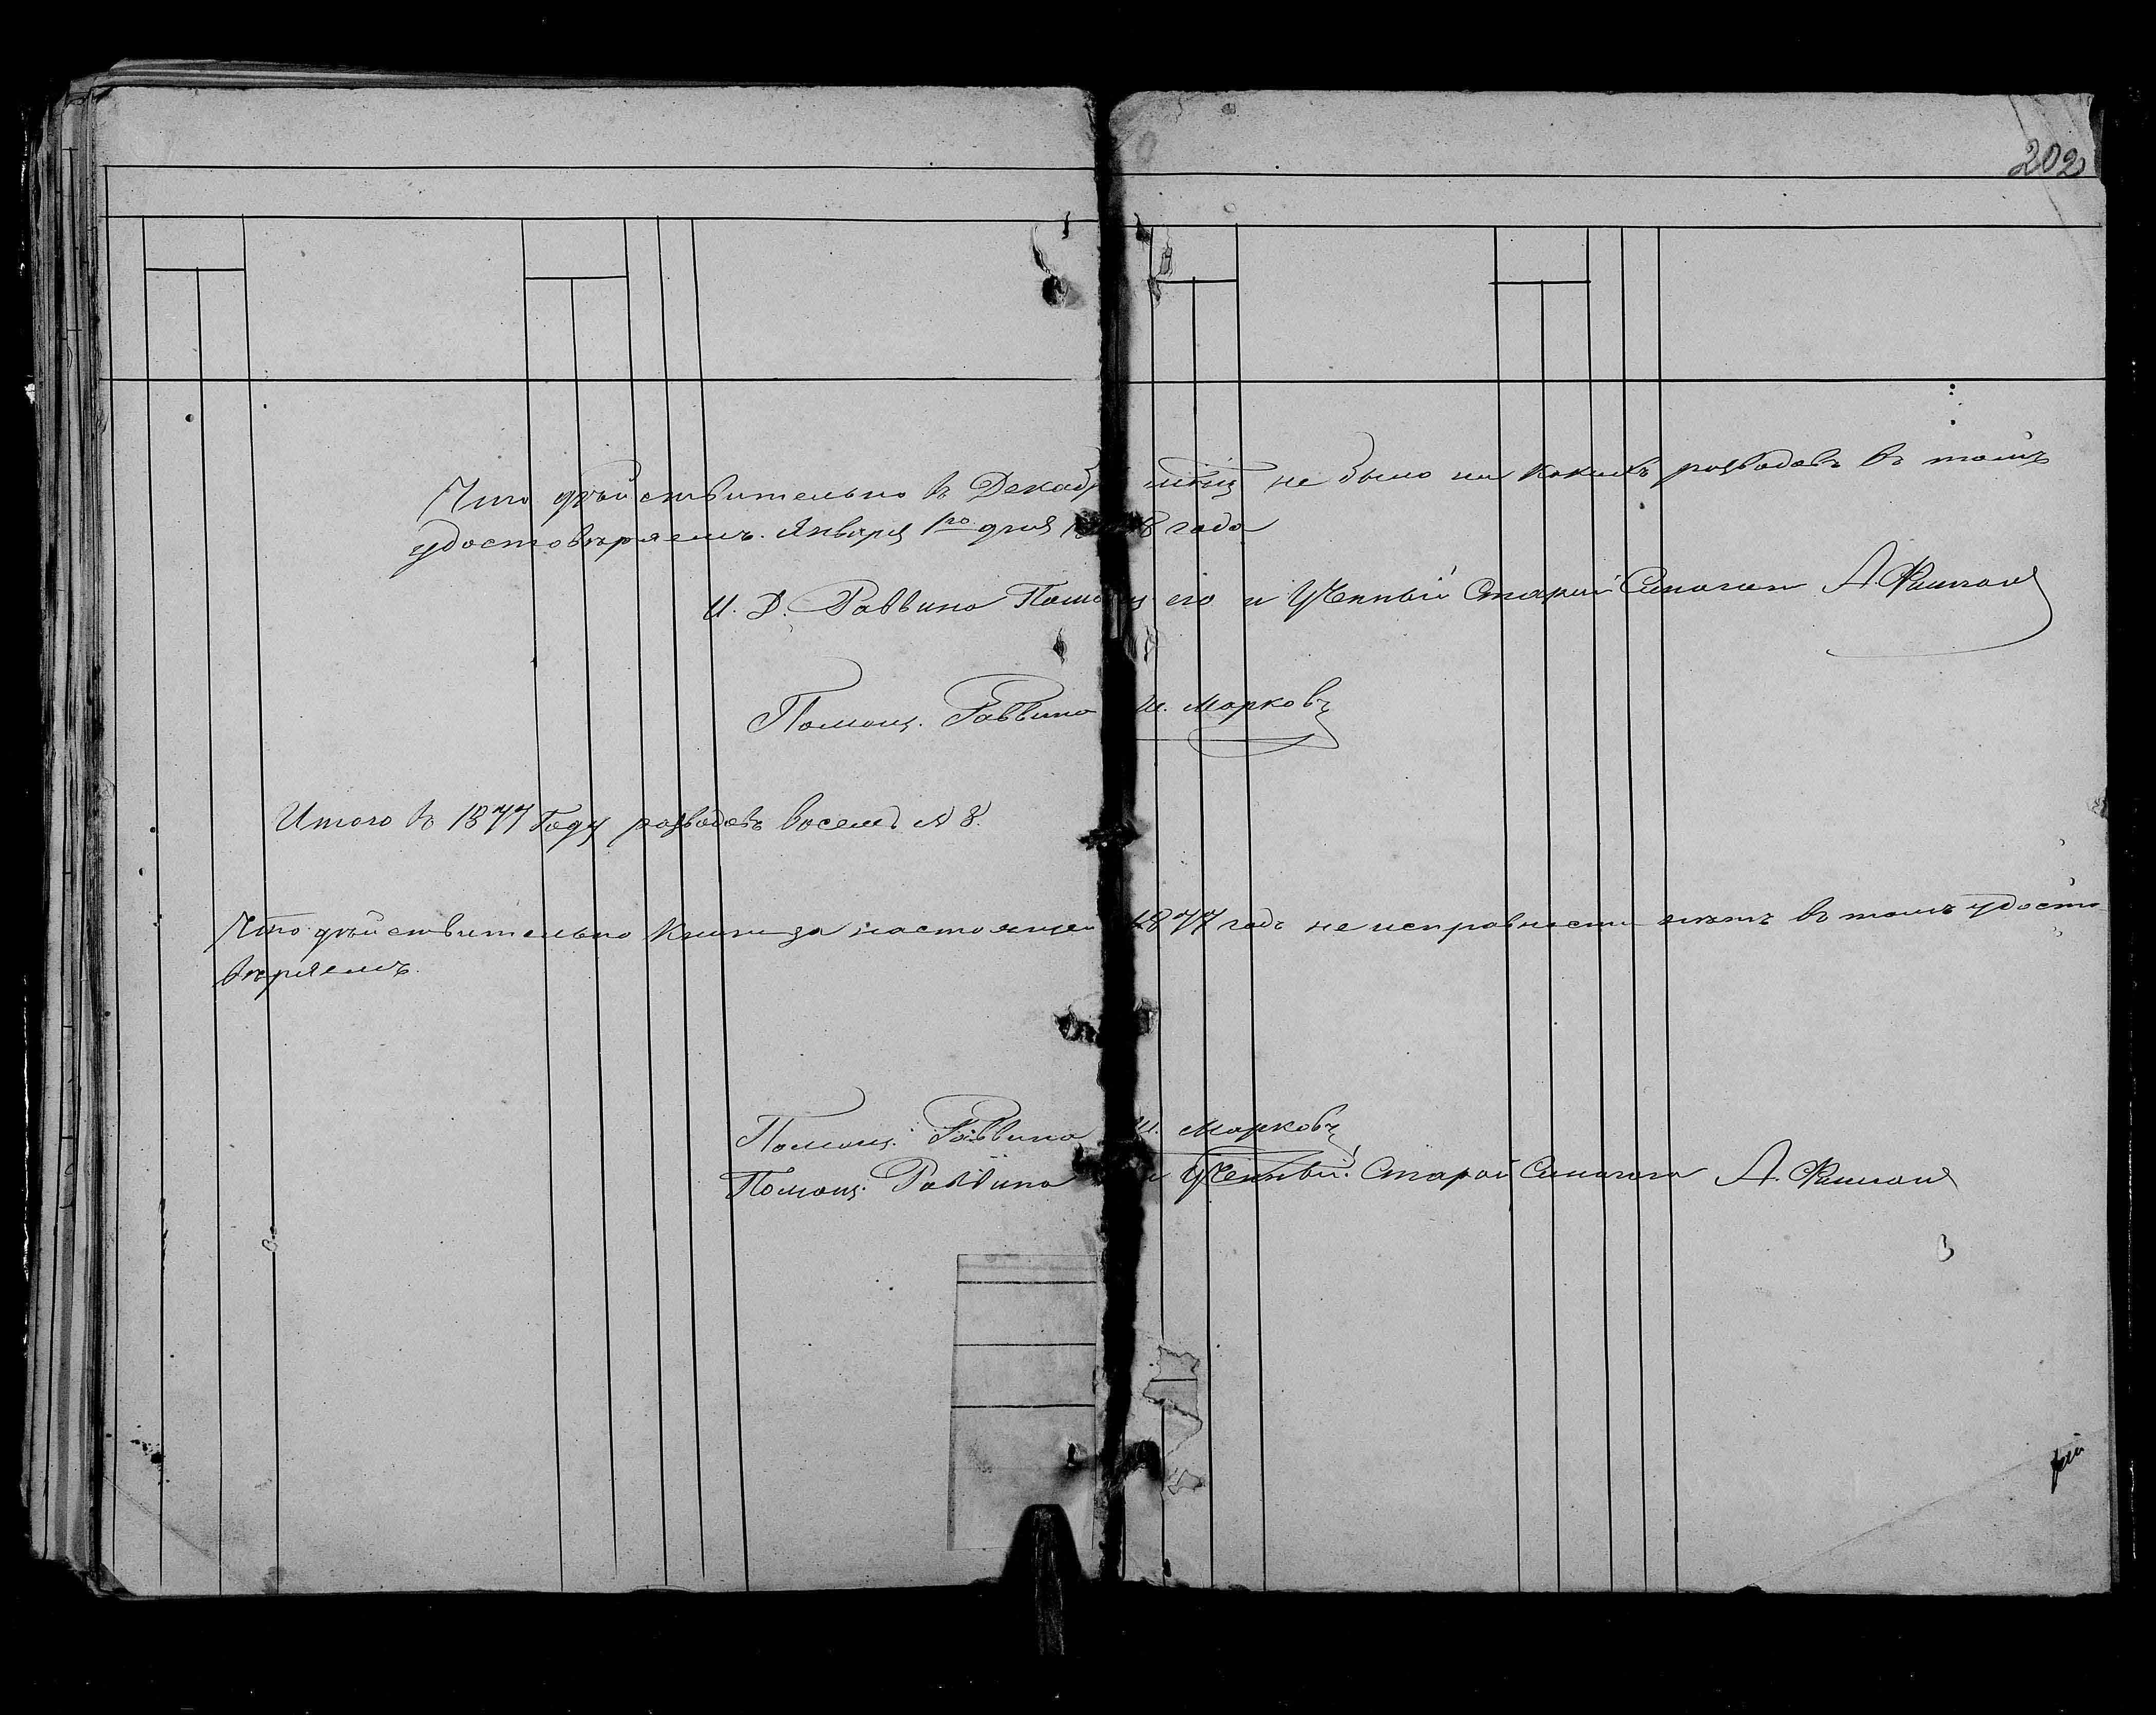 202
Что дѣйствительно въ Декабр мѣсц не было ни какихъ розводовъ въ томъ
удостовѣряемъ. Января 1го дня 18 8 года
И. Д. Раввина Помощ его и Ученный Старой Синагоги А. Фишман
Помощ. Раввина Ш. Марковъ
Итого въ 1877 Году розводовъ восемь № 8.
Что дѣйствительно книги за настоящей 1877 годъ не исправности нѣтъ въ томъ удосто
вѣряемъ.
Помощ. Раввина Ш. Марковъ
Помощ. Раввина и Ученный Старой Синагога А. Фишман